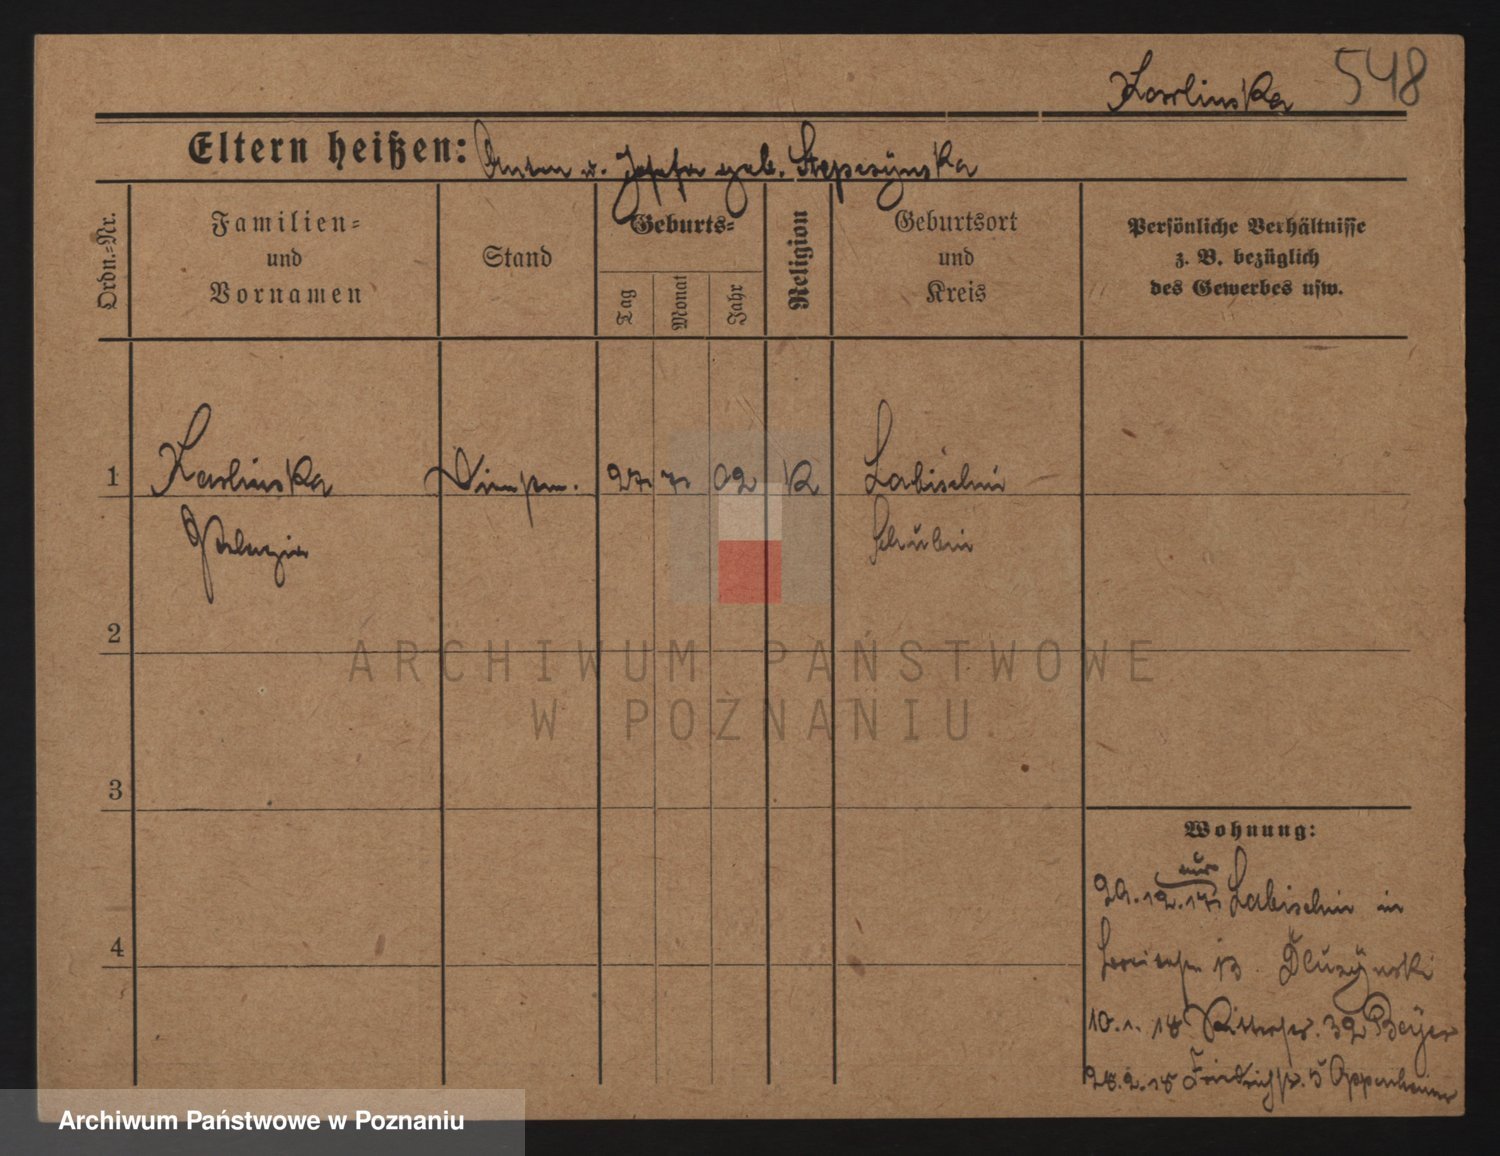 Karlinska 548
Eltern heißen: Anton u. Josefa geb. Stepczynska
Ordn.-Nr.
Familien-
und
Vornamen
Stand
Geburts-
Tag
Monat
Jahr
Religion
Geburtsort
und
Kreis
Persönliche Verhältnisse
z. B. bezüglich
des Gewerbes usw.
1 Karlinska 27 7 02 K Labischin
Pelagia Schubin
2
ARCHIWUM PAŃSTWOWE
W POZNANIU
3
Wohnung:
aus
29.12.17 Labischin in
13 Dluzynski
4
10.1.18 Ritterstr. 32 Beyer
28.2.18 Friedrichstr. 5 Oppenheimer
Archiwum Państwowe w Poznaniu